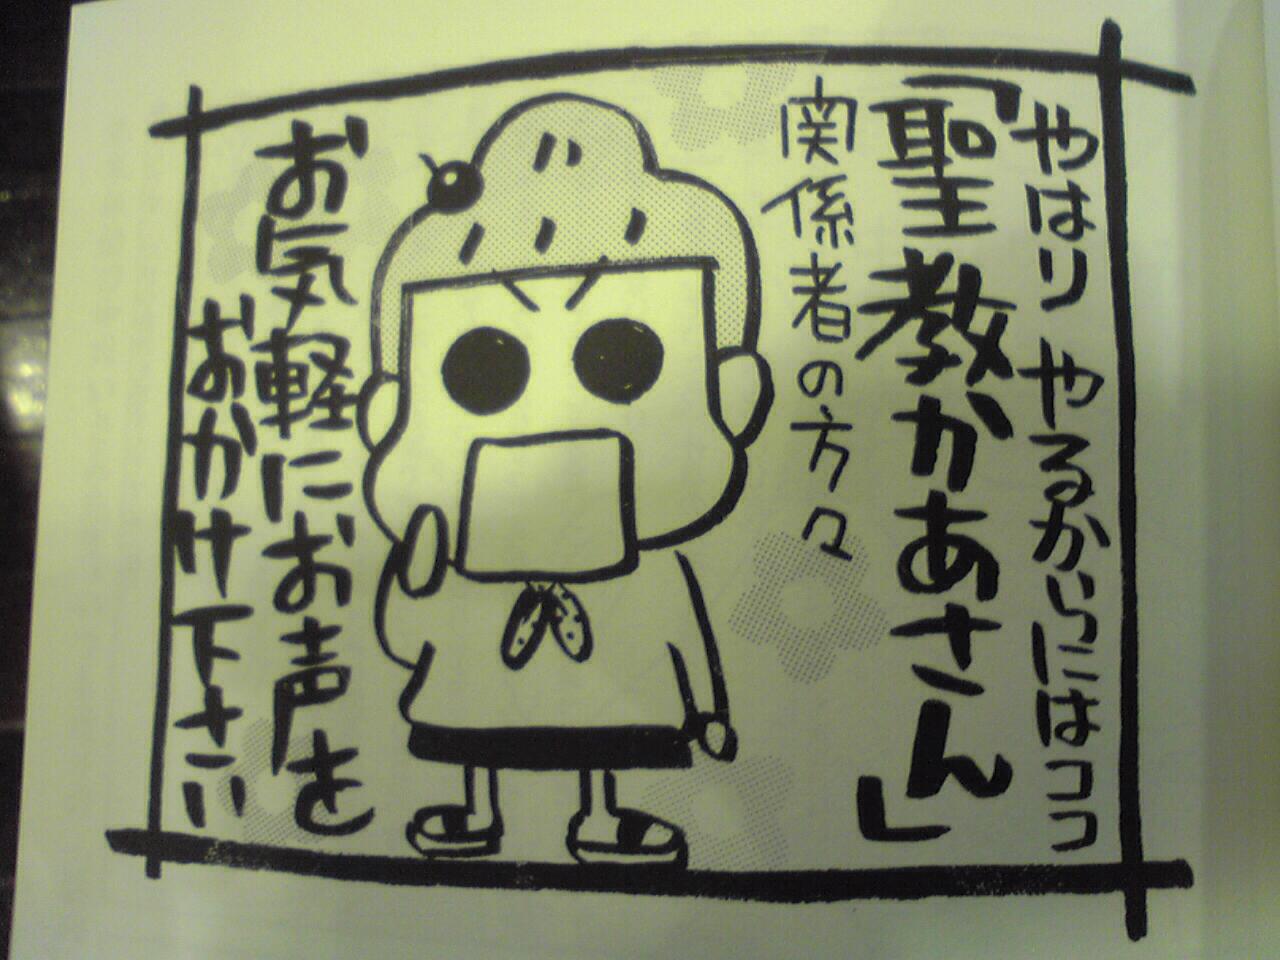 やはり やるからにはココ
「聖教かあさん」
関係者の方々
お気軽にお声を
おかけ下さい